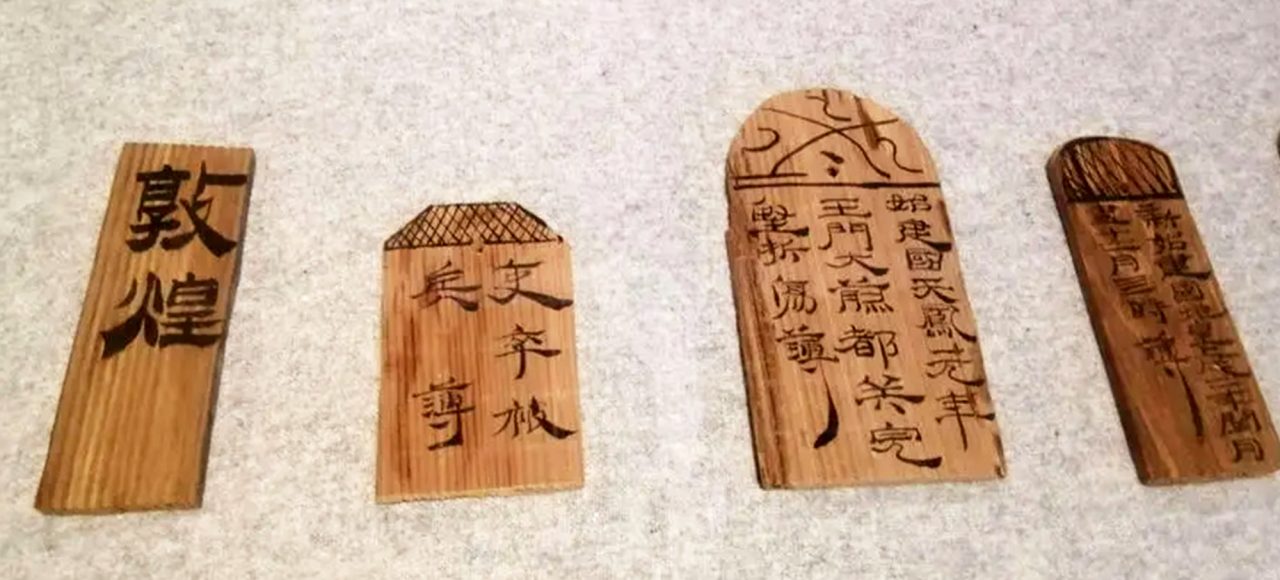 敦煌
吏卒被
兵簿
始建國天鳳元年
玉門大煎都兵完
堅折傷簿
新始建國地皇上戊二年閏月
盡十二月三時簿